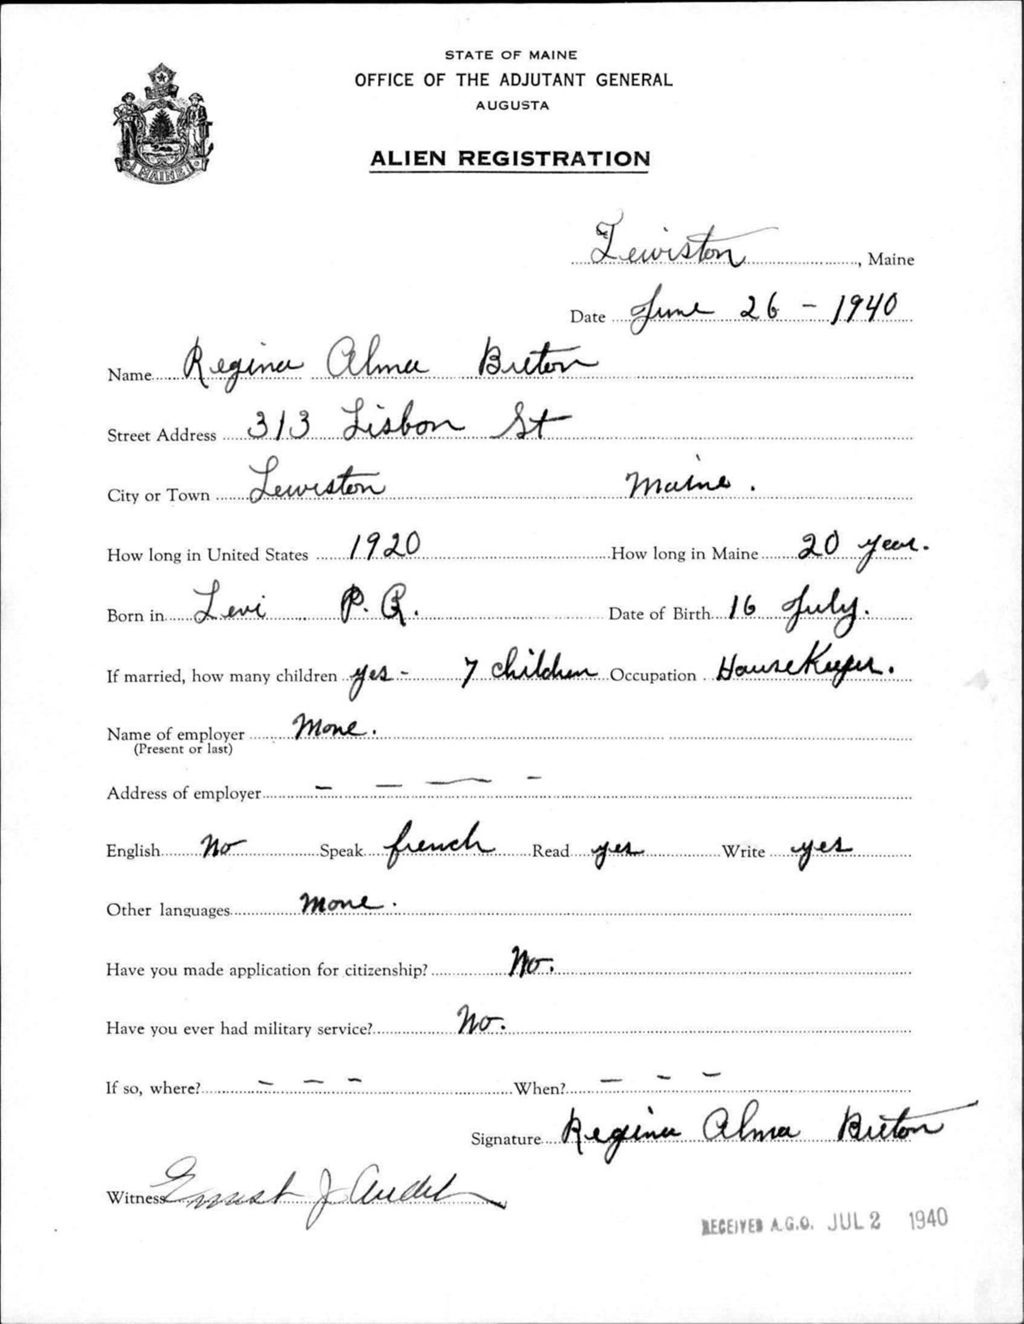 STATE OF MAINE
OFFICE OF THE ADJUTANT GENERAL
AUGUSTA
ALIEN REGISTRATION
MAINE
Lewiston, Maine
Date June 26 - 1940
Name Regina Alma Breton
Street Address 313 Lisbon St
City or Town Lewiston Maine.
How long in United States 1920 How long in Maine 20 year.
Born in Levi P. Q. Date of Birth 16 July.
If married, how many children yes - 7 children Occupation HouseKeeper.
Name of employer None.
(Present or last)
Address of employer - - - -
English No Speak french Read yes Write yes
Other languages None.
Have you made application for citizenship? No.
Have you ever had military service? No.
If so, where? - - - When? - - -
Signature Regina Alma Breton
Witness Ernest J
RECEIVED A.G.O. JUL 2 1940